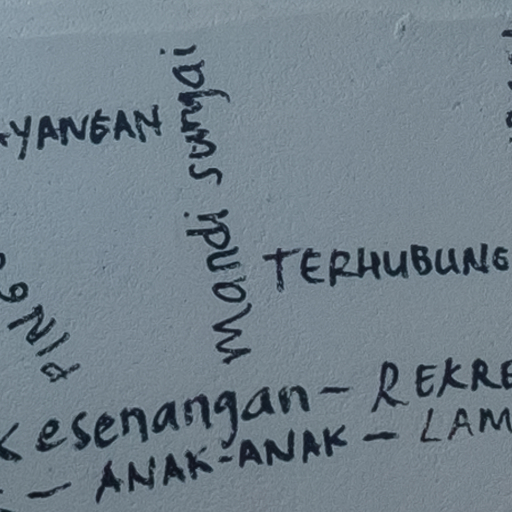 YANGAN
mandi sungai
TERHUBUNG
Kesenangan - REKRE
- ANAK-ANAK - LAM